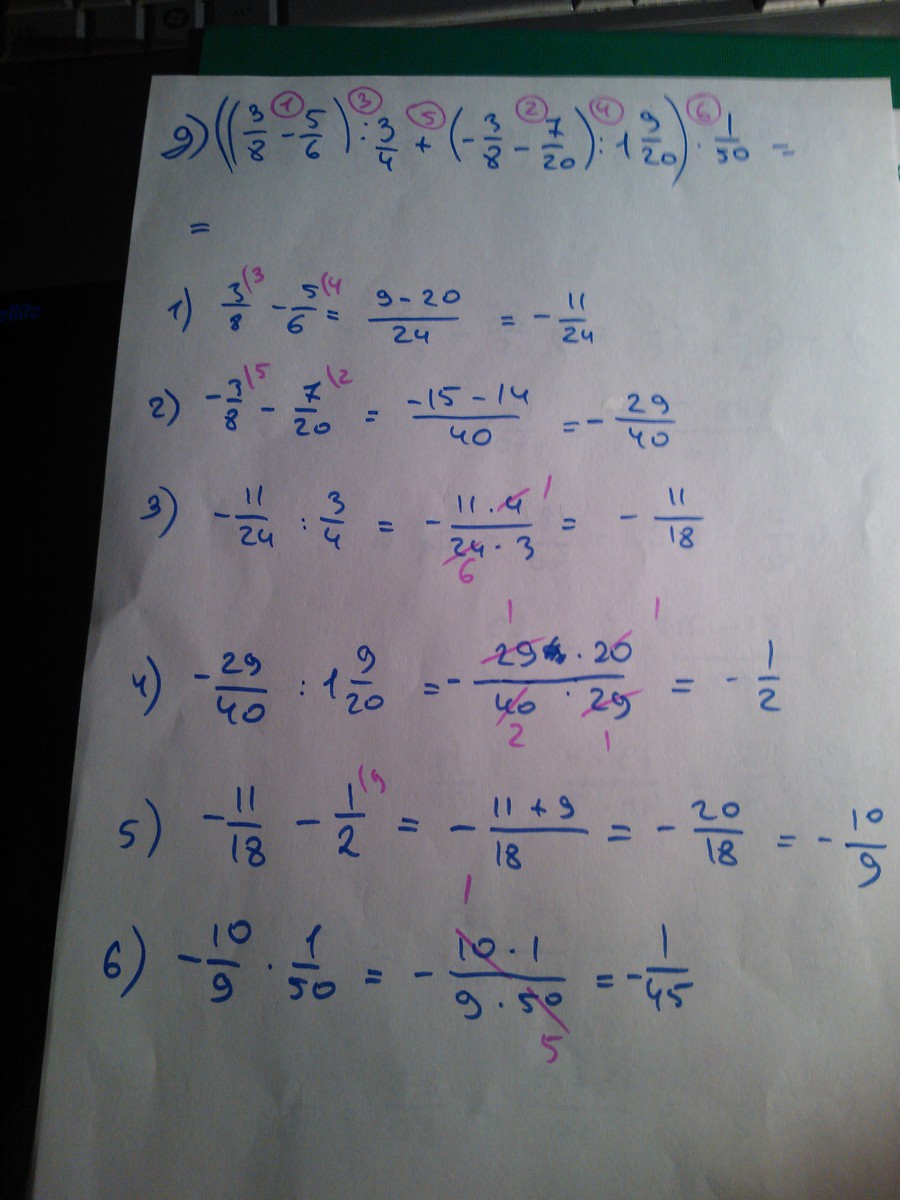 g) ((3/8 - 5/6) : 3/4 + (-3/8 - 7/20) : 1 9/20) · 1/50 =
① ③ ⑤ ② ④ ⑥
=
1) 3/8 (3 - 5/6 (4 = (9 - 20)/24 = - 11/24
2) -3/8 (5 - 7/20 (2 = (-15 - 14)/40 = - 29/40
3) - 11/24 : 3/4 = - (11 · 4)/(24 · 3) 1 6 = - 11/18
4) - 29/40 : 1 9/20 = - (29 · 20)/(40 · 29) 1 1 2 1 = - 1/2
5) - 11/18 - 1/2 (9 = - (11 + 9)/18 = - 20/18 = - 10/9
6) - 10/9 · 1/50 = - (10 · 1)/(9 · 50) 1 5 = - 1/45